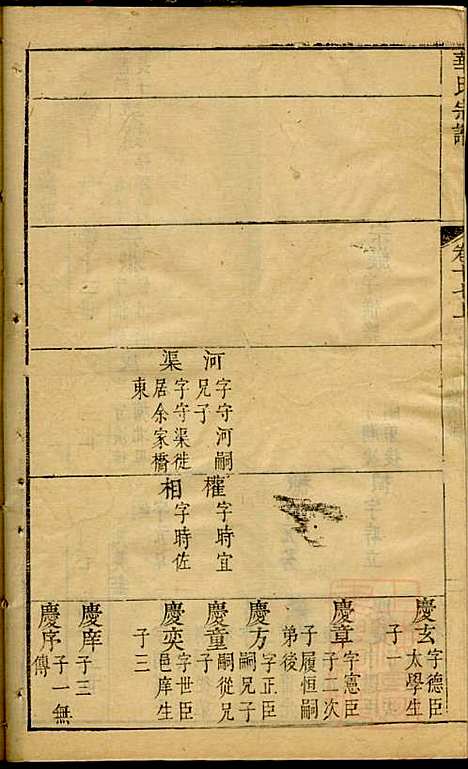 華氏宗譜
卷十七上
河
字守河嗣
兄子
渠
字守渠徙
居余家橋
東
權
字時宜
相
字時佐
慶玄
字德臣
太學生
子一
慶章
字憲臣
子二次
子履恒嗣
弟後
慶方
字正臣
嗣兄子
慶童
嗣從兄
子
慶奕
字世臣
邑庠生
子三
慶庠
子三
慶序
子一無
傳